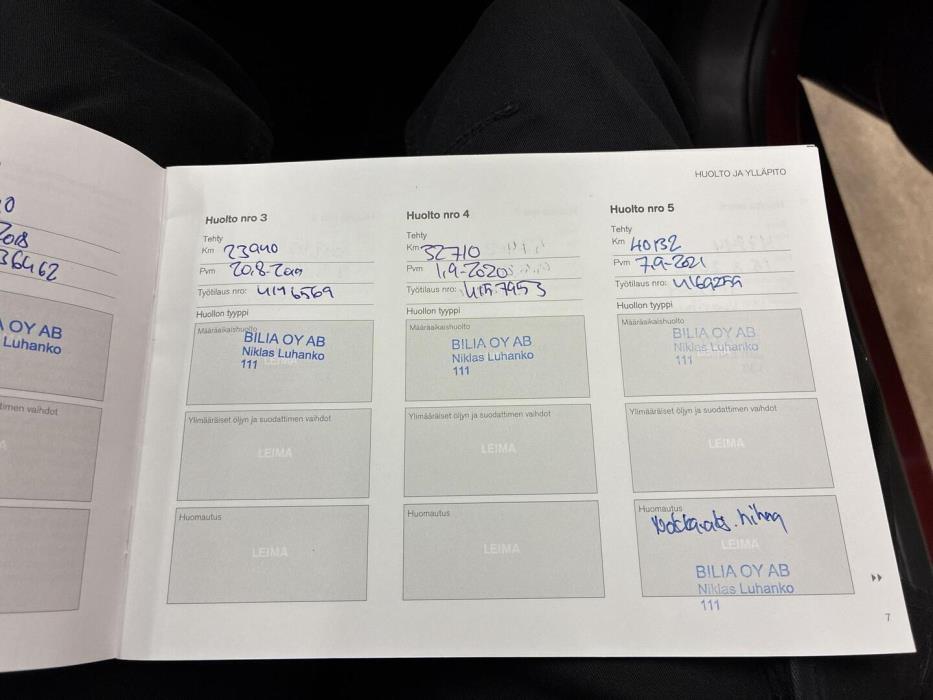 0
2018
36462
A OY AB
Luhanko
timen vaihdot
HUOLTO JA YLLÄPITO
Huolto nro 3
Tehty
Km 23940
Pvm 20.8-2019
Työtilaus nro: 4146569
Huollon tyyppi
Määräaikaishuolto
BILIA OY AB
Niklas Luhanko
111
Ylimääräiset öljyn ja suodattimen vaihdot
LEIMA
Huomautus
LEIMA
Huolto nro 4
Tehty
Km 32710
Pvm 1.9-2020
Työtilaus nro: 4157953
Huollon tyyppi
Määräaikaishuolto
BILIA OY AB
Niklas Luhanko
111
Ylimääräiset öljyn ja suodattimen vaihdot
LEIMA
Huomautus
LEIMA
Huolto nro 5
Tehty
Km 40132
Pvm 7.9-2021
Työtilaus nro: 4169259
Huollon tyyppi
Määräaikaishuolto
BILIA OY AB
Niklas Luhanko
111
Ylimääräiset öljyn ja suodattimen vaihdot
LEIMA
Huomautus
hihna
LEIMA
BILIA OY AB
Niklas Luhanko
111
7